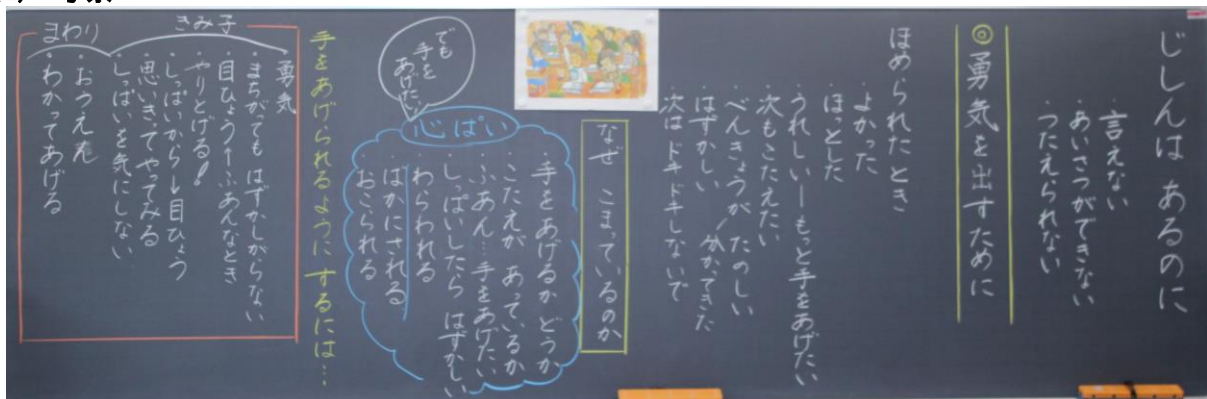 じしんは あるのに
・言えない
・あいさつができない
・つたえられない
◎勇気を出すために
ほめられたとき
・よかった
・ほっとした
・うれしいーもっと手をあげたい
・次もこたえたい
・べんきょうが たのしい
分かってきた
・はずかしい
・次はドキドキしないで
なぜ こまっているのか
心ぱい
・手をあげるか どうか
・こたえが あっているか
・ふあん…手をあげたい
・しっぱいしたら はずかしい
・わらわれる
・ばかにされる
・おこられる
でも
手を
あげたい
手をあげられるように するには…
きみ子
勇気
・まちがっても はずかしがらない
・目ひょう←ふあんなとき
・やりとげる!
・しっぱいから→目ひょう
・思いきってやってみる
・しっぱいを気にしない
まわり
・おうえん
・わかってあげる